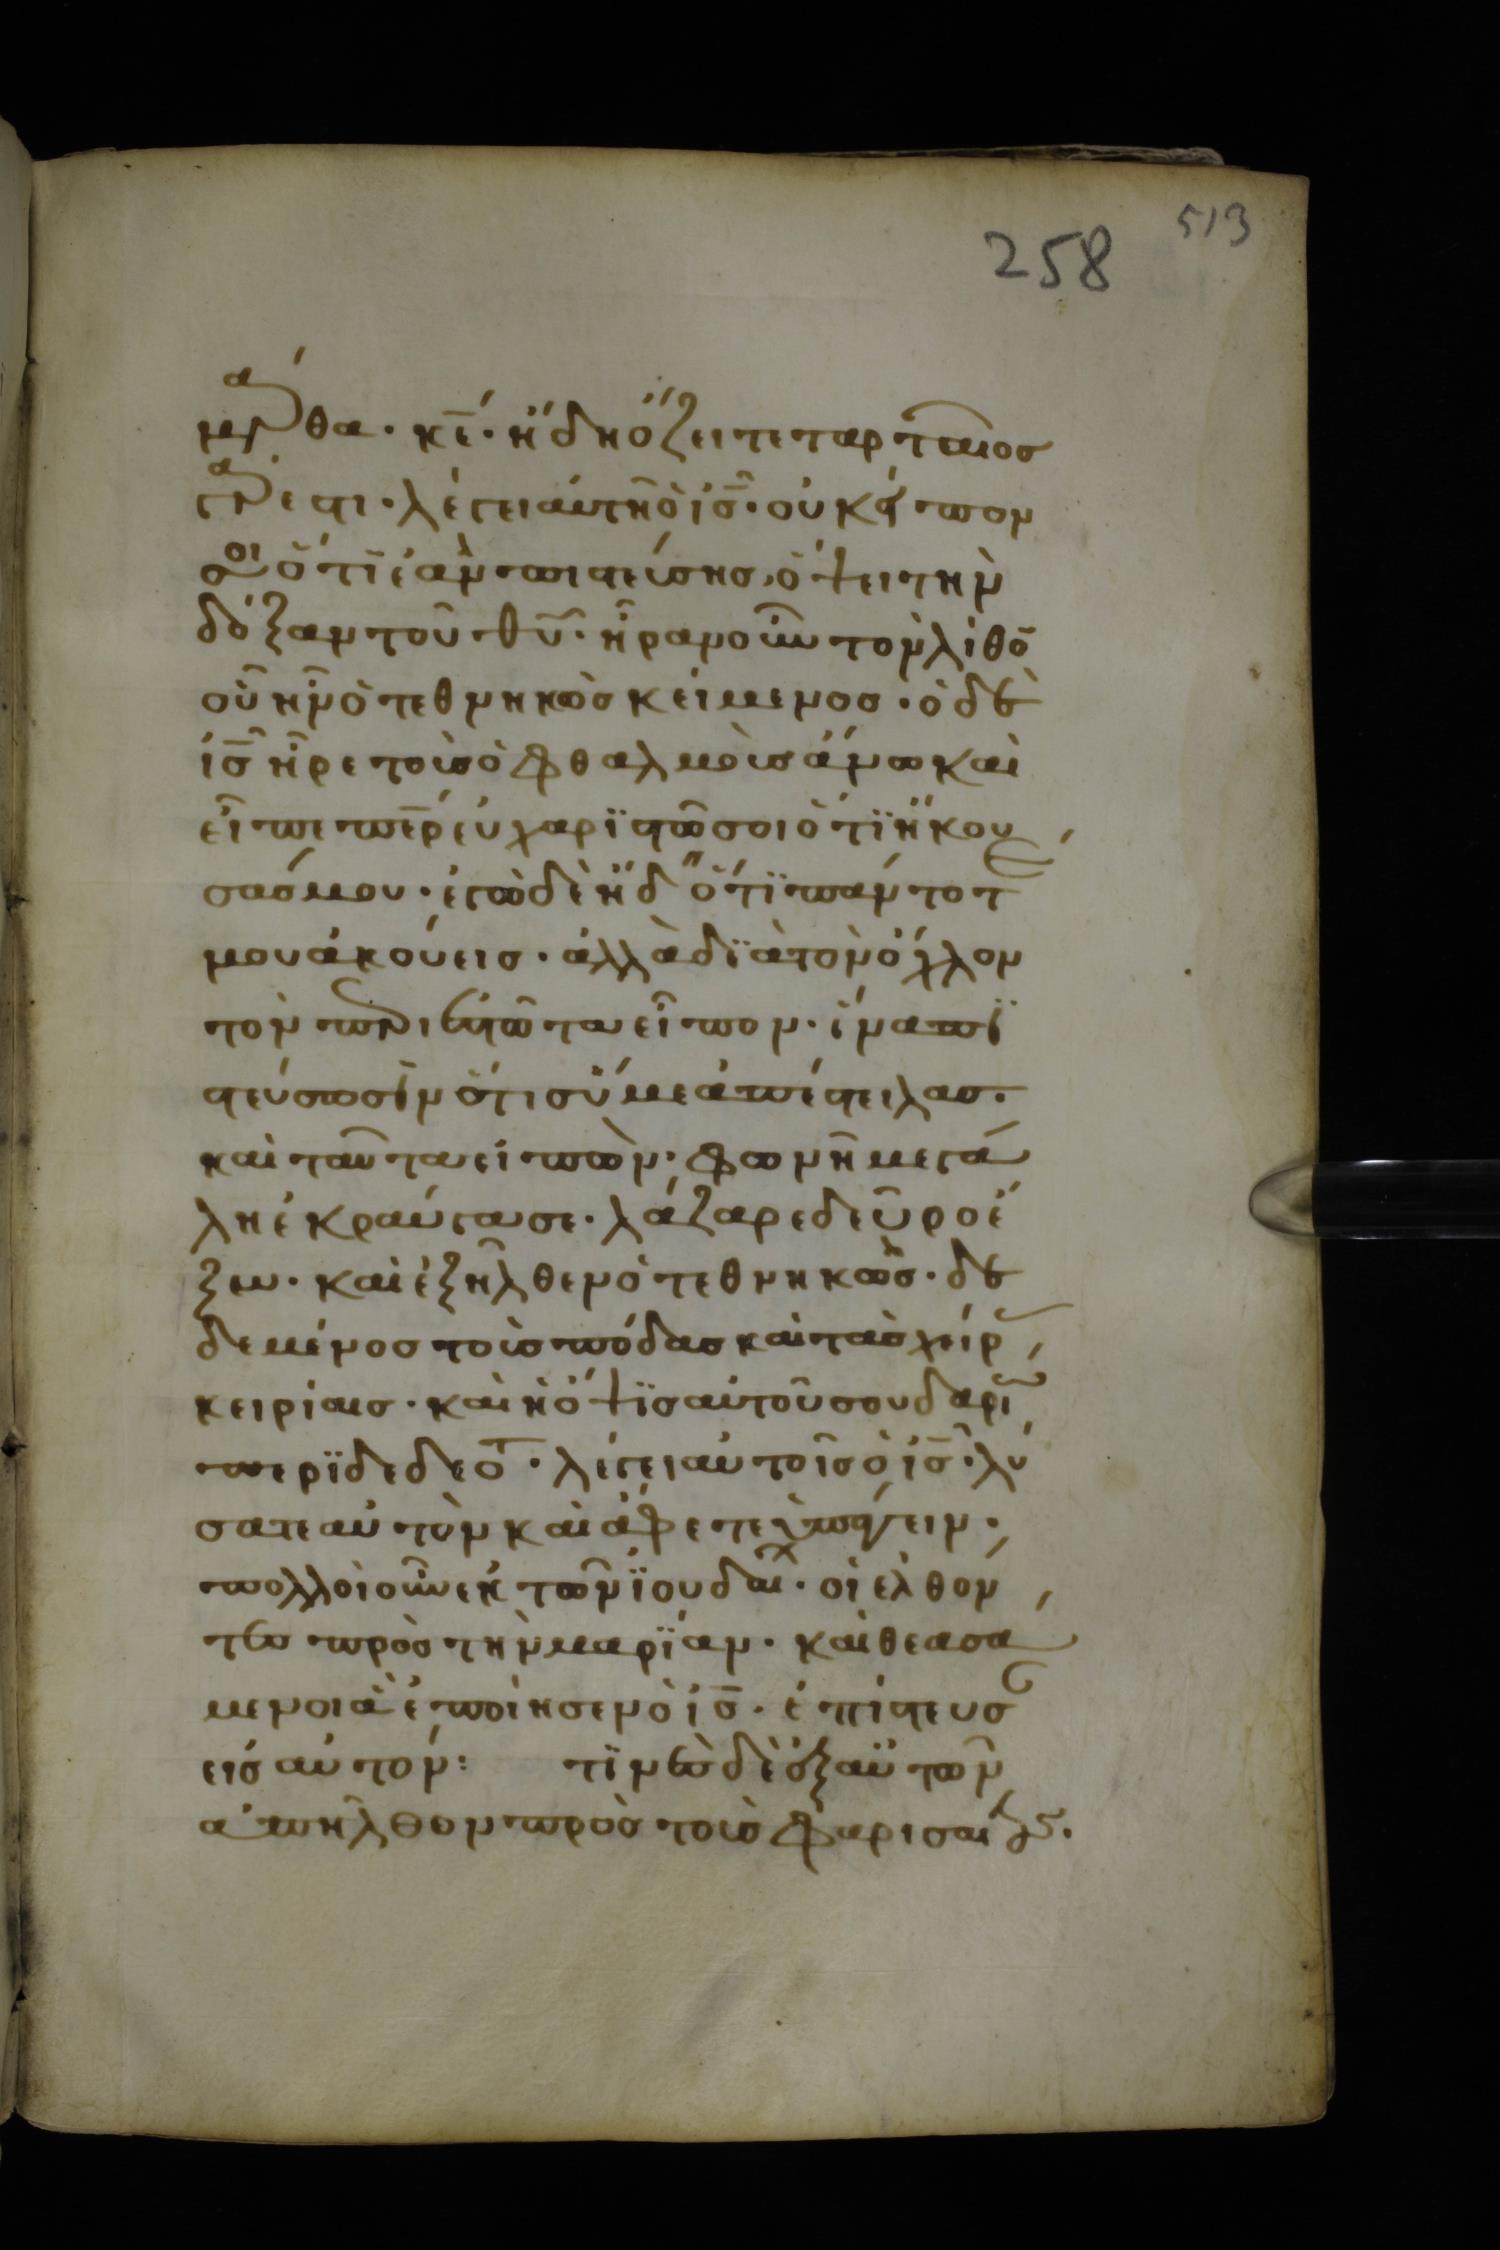 513
258
μάρθα · κε̄ · ἤδη ὄζει τεταρταῖος
γάρ ἐστι · λέγει αὐτῆ ὁ ις̄ · οὐκ εἶπον
σοι ὅτι ἐὰν πιστεύσης, ὄψει τὴν
δόξαν τοῦ θῡ · ἦραν οὖν τὸν λίθο̄
οὗ ἦν ὁ τεθνηκὼς κείμενος · ὁ δὲ
ις̄ ἦρε τοὺς ὀφθαλμοὺς ἄνω καὶ
εἶπε περ̄ εὐχαριστῶ σοι ὅτι ἤκου
σάς μου · ἐγὼ δὲ ἤδ ὅτι πάντοτε
μου ἀκούεις · ἀλλὰ διὰ τὸν ὄχλον
τὸν περιεστῶτα εἶπον · ἵνα πι
στεύσωσιν ὅτι σύ με ἀπέστειλας ·
καὶ ταῦτα εἰπὼν, φωνῆ μεγά
λη ἐκραύγασε · λάζαρε δεῦρο ἔ
ξω · καὶ ἐξῆλθεν ὁ τεθνηκὼς · δε
δεμένος τοὺς πόδας καὶ τὰς χεῖρ
κειρίαις · καὶ ἡ ὄψις αὐτοῦ σουδαρί
περιεδέδετο · λέγει αὐτοῖς ὁ ις̄ · λύ
σατε αὐτὸν καὶ ἄφετε ὑπάγειν ·
πολλοὶ οὖν ἐκ τῶν ἰουδαί · οἱ ἐλθόν
τες πρὸς τὴν μαριάμ · καὶ θεασά
μενοι ἃ ἐποίησεν ὁ ις̄ · ἐπίστευσ
εἰς αὐτόν : τινὲς δὲ ἐξ αὐτῶν
ἀπῆλθον πρὸς τοὺς φαρισαίους ·